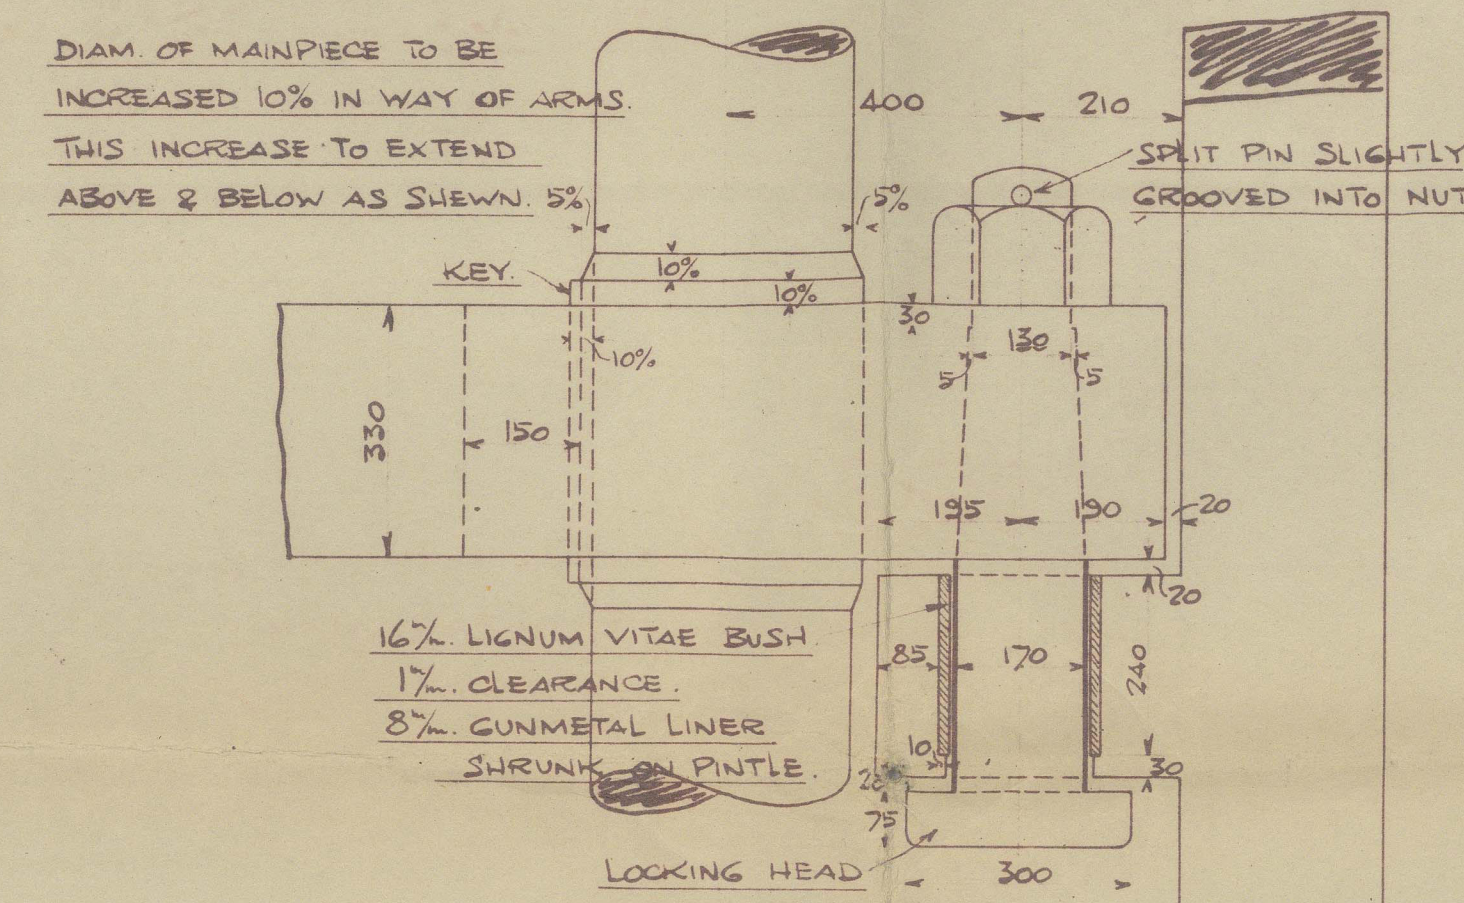 DIAM. OF MAINPIECE TO BE
INCREASED 10% IN WAY OF ARMS.
THIS INCREASE TO EXTEND
ABOVE & BELOW AS SHEWN.
5%
5%
400
210
SPLIT PIN SLIGHTLY
GROOVED INTO NUT
KEY.
10%
10%
30
10%
130
5
5
330
150
195
190
20
20
16 m/m. LIGNUM VITAE BUSH
1 m/m. CLEARANCE.
8 m/m. GUNMETAL LINER
SHRUNK ON PINTLE.
85
170
240
10
30
75
LOCKING HEAD
300